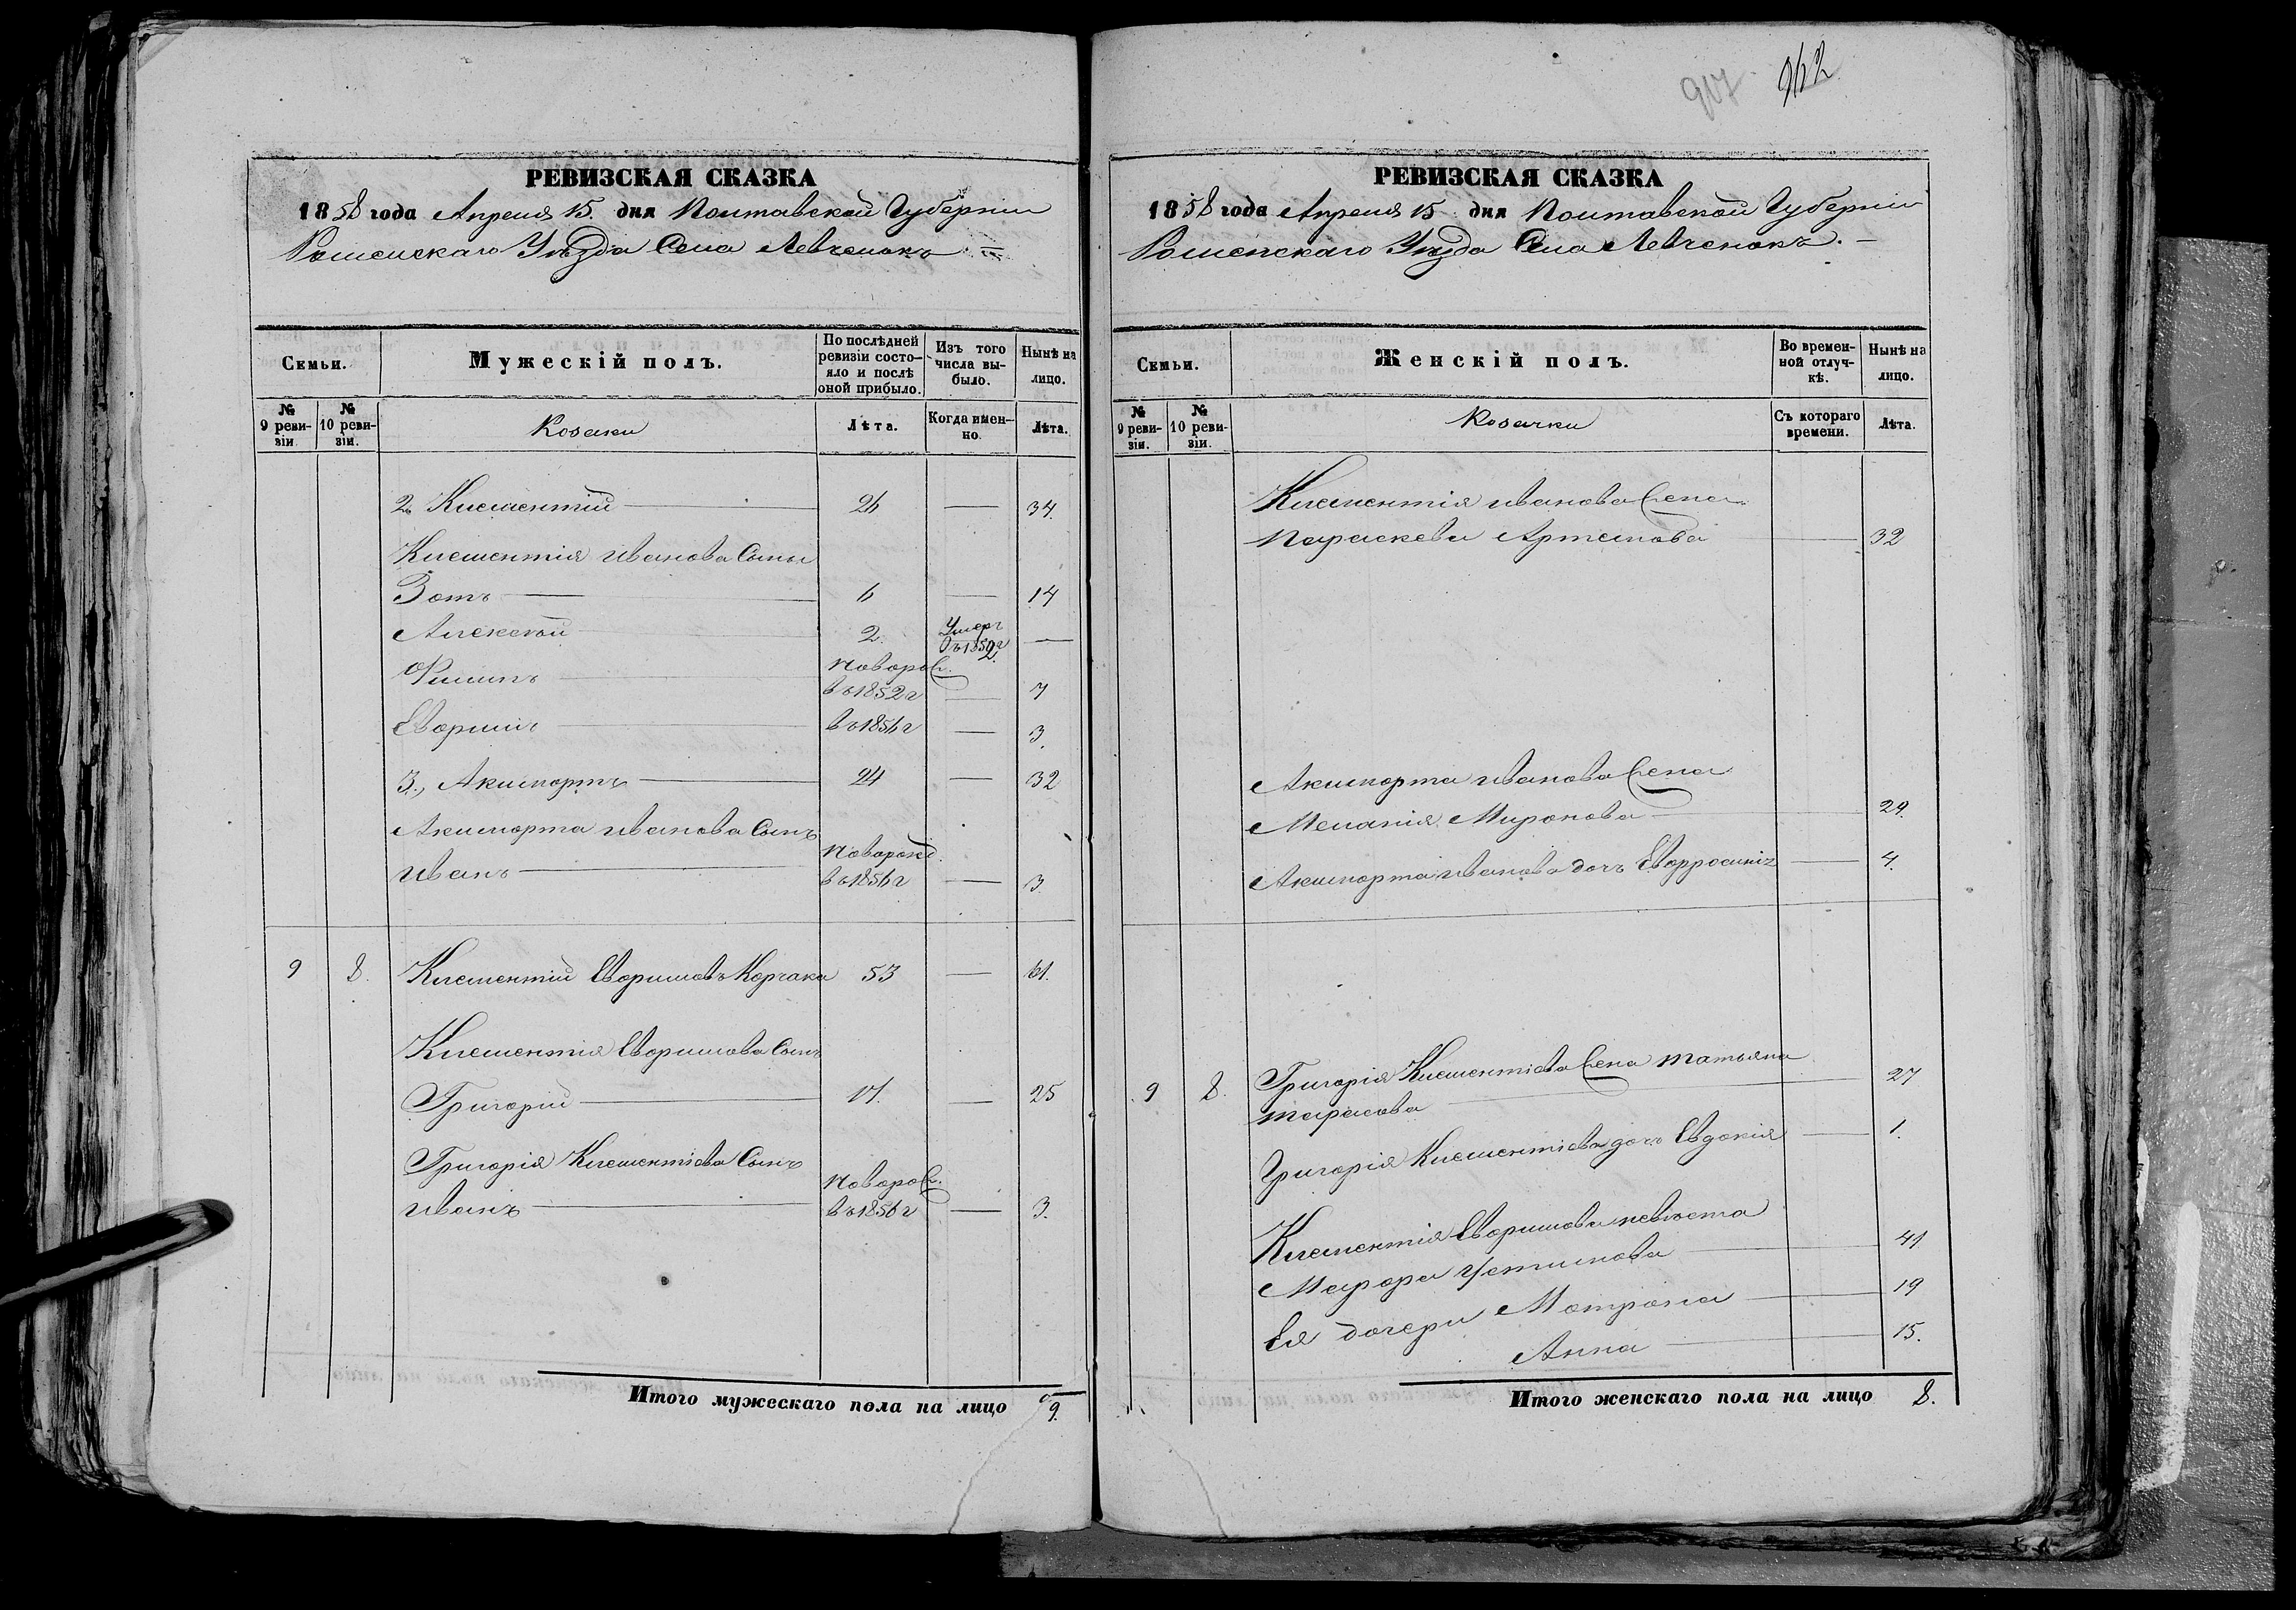 917 962
РЕВИЗСКАЯ СКАЗКА
1858 года Апреля 15. дня Полтавской Губерніи
Роменскаго Уѣзда Села Левченокъ
Семьи.
Мужескій полъ.
По послѣдней ревизіи состояло и послѣ оной прибыло.
Изъ того числа выбыло.
Нынѣ на лицо.
№ 9 ревизіи
№ 10 ревизіи.
Козаки
Лѣта.
Когда именно.
Лѣта.
2. Клементій 26 — 34.
Клементія Иванова Сыны
Зотъ 6 — 14
Алексѣй 2. Умеръ въ 1852 г —
Филипъ Новорож. въ 1852 г — 7
Евфимъ въ 1856 г — 3.
3., Акилфортъ 24 — 32
Акилфорта Иванова Сынъ
Иванъ Новорожд. въ 1856 г — 3.
9 8. Клементій Евфимовъ Корчака 53 — 61.
Клементія Евфимова Сынъ
Григорій 17. — 25
Григорія Клементіева Сынъ
Иванъ Новорож. въ 1856 г — 3.
Итого мужескаго пола на лицо 9.
РЕВИЗСКАЯ СКАЗКА
1858 года Апреля 15 дня Полтавской Губерніи
Роменскаго Уѣзда Села Левченокъ. —
Семьи.
Женскій полъ.
Во временной отлучкѣ.
Нынѣ на лицо.
№ 9 ревизіи.
№ 10 ревизіи.
Козачки
Съ котораго времени.
Лѣта.
Клементія Иванова Жена
Параскева Артемова — 32
Акилфорта Иванова Жена
Меланія Миронова — 29.
Акилфорта Иванова дочъ Евфросинія — 4.
9 8. Григорія Клементіева Жена Татьяна
Тарасова — 27
Григорія Клементіева дочъ Евдокія — 1.
Клементія Евфимова невѣста
Марфа Устимова — 41
Ея дочери Матрона — 19
Анна — 15.
Итого женскаго пола на лицо 8.